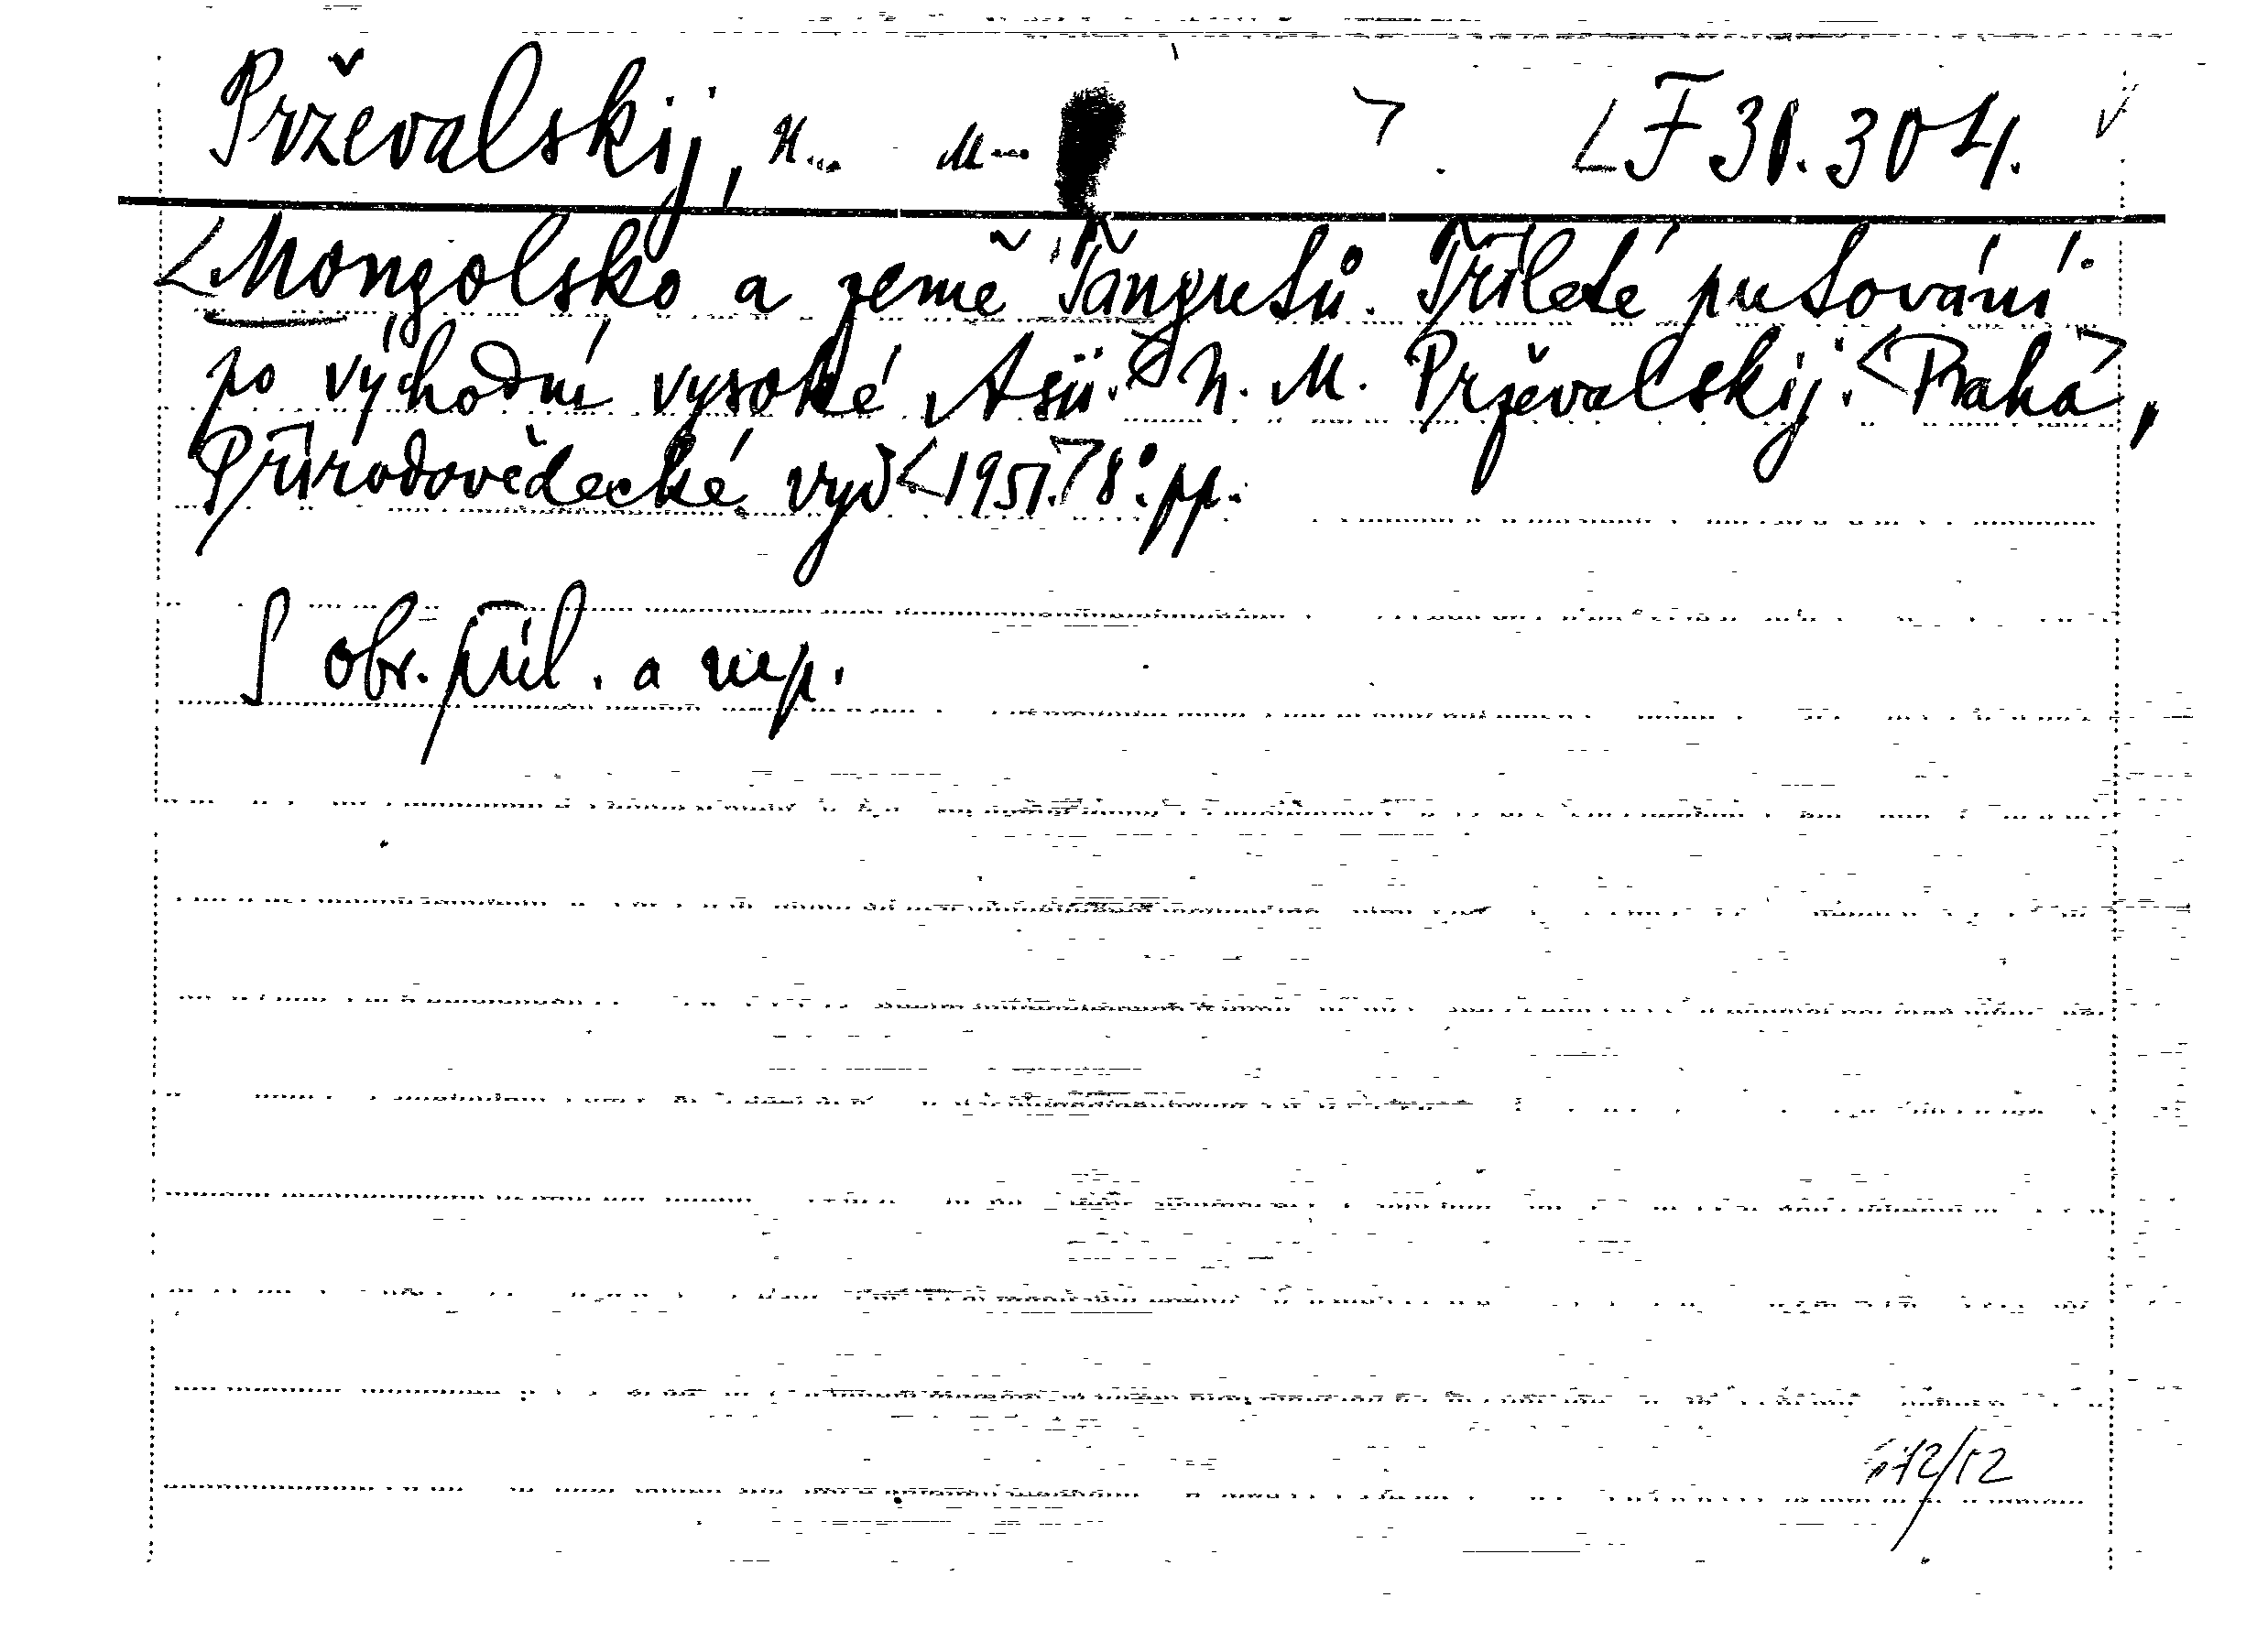 Prževalskij, N... M... > . <F 30.304. √
<Mongolsko a země Tangutů. Tříleté putování
po východní vysoké Asii.> N. M. Prževalskij. <Praha>,
Přírodovědecké vyd <1951.> 8°. pp.
S obr. příl. a